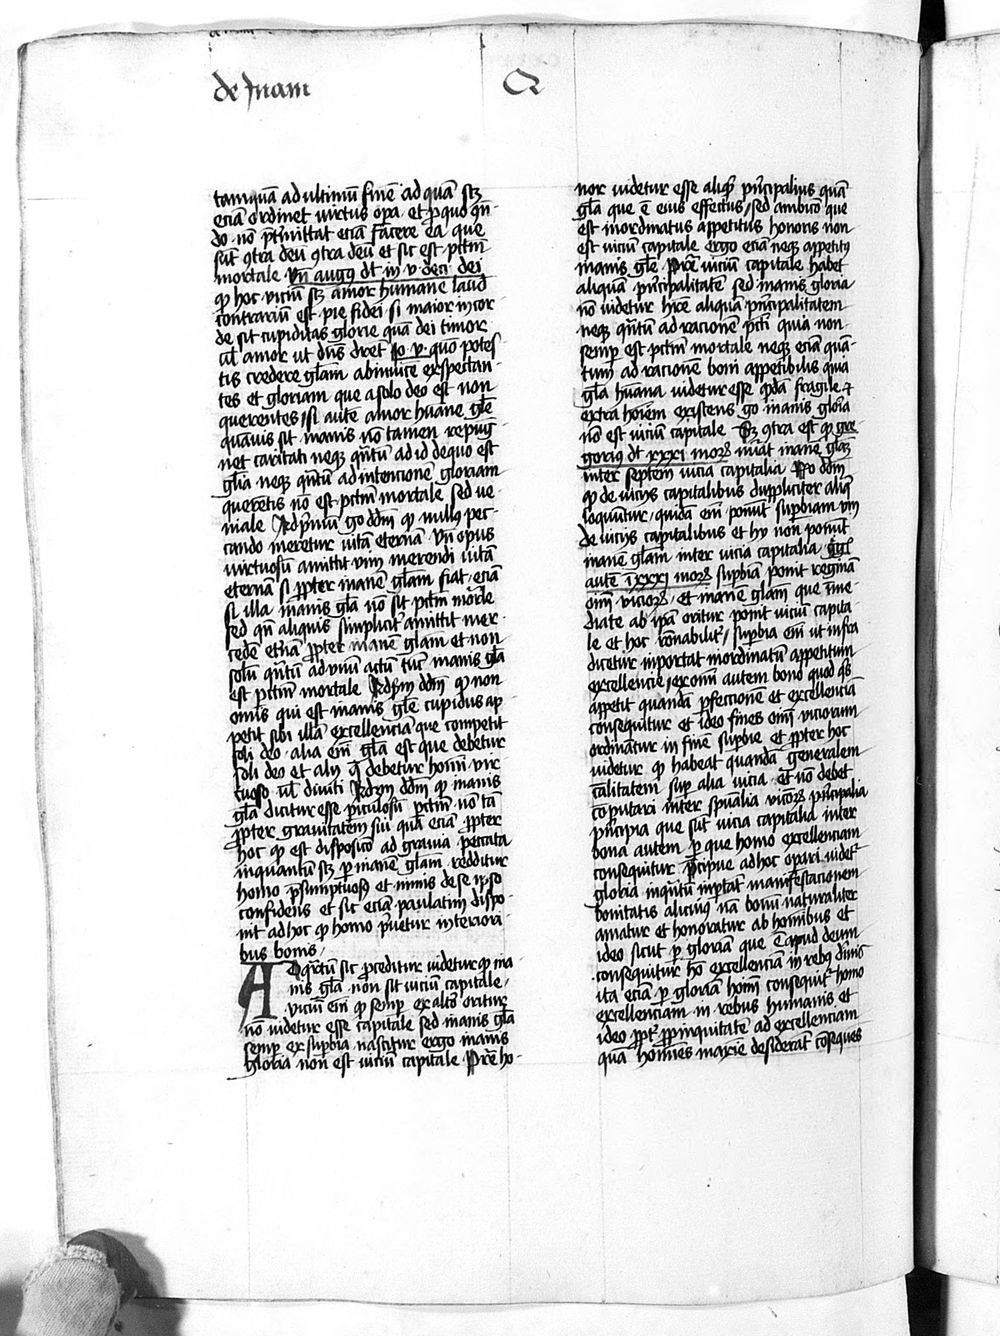 de Inani
Q
tamquā ad ultimū finē ad quā scꝫ
eciā ordinet virtus opa et ꝓ quo qn̄
do nō p̄tmittat eciā facere ea que
sūt ꝯtra deū et sic est pctm̄
mortale Vn̄ augꝰ dt in v deci dei
ꝙ hoc viciū scꝫ amor humane laud
contrariū est pie fidei si maior in cor
de sit cupiditas glorie quā dei timor
ul amor ut dn̄s dicet Jo v quō potes
tis credere glām abinuicē exspectan
tes et gloriam que a solo deo est non
querentes si autē amor hūane gl̄e
quāuis sit inanis nō tamen repug
net caritati neqꝫ qn̄tū ad id de quo est
gl̄ia neqꝫ qn̄tū ad intencionē gloriam
querentis nō est pctm̄ mortale sed ue
niale Ad p̄mū go dd̄m ꝙ nullꝰ pec
cando meretur vitā eternā Vn̄ opus
virtuosū amittit vim merendi vitā
eternā si ꝓpter inanē glām fiat eciā
si illa inanis gl̄a nō sit pctm̄ mor̄le
sed qn̄ aliquis simplicit̄ amittit mer
cedē et̄nā ꝓpter inanē glām et non
solū qn̄tū ad vnū actū tūc inanis gl̄a
est pctm̄ mortale Ad sm̄ dd̄m ꝙ non
omīs qui est inanis gl̄e cupidus ap
petit sibi illā excellenciā que competit
soli deo alia em̄ gl̄a est que debetur
soli deo et alia q̄ debetur homī vir
tuoso ul diuiti Ad 3m dd̄m ꝙ inanis
gl̄a dicitur esse piculosū pctm̄ nō tā
ꝓpter grauitatem sui quā eciā ꝓpter
hoc ꝙ est disposicō ad grauia peccata
inquantū scꝫ p inanē glām redditur
homo p̄sūptuosꝰ et nimis de se ip̄o
confidens et sic eciā paulatim dispo
nit ad hoc ꝙ homo p̄uetur interiori
bus bonis
Ad q̄rtū sic ꝓceditur videtur ꝙ ina
nis gl̄a non sit viciū capitale
viciū em̄ ꝙ semp ex alto oritur
nō videtur esse capitale sed inanis gl̄a
semp ex supbia nascitur ergo inanis
gloria non est viciū capitale Pret̄ ho
nor videtur esse aliqd̄ p̄ncipalius quā
gl̄a que ē eius effectus sed ambicō que
est inordinatus appetitus honoris non
est viciū capitale ergo eciā neqꝫ appetitꝰ
inanis gl̄e Pret̄ viciū capitale habet
aliquā p̄ncipalitatē sed inanis gloria
nō videtur hr̄e aliquā p̄ncipalitatem
neqꝫ qn̄tū ad racionē pcti quia non
semp est pctm̄ mortale neqꝫ eciā quā
tum ad racionē boni appetibilis quia
gl̄a hūana videtur esse qd̄a fragile ⁊
extra hoīem existens go inanis gloria
nō est viciū capitale Sꝫ ꝯtra est ꝙ gre
goriꝰ dt xxxi moꝝ nūat inanē glam
inter septem vicia capitalia Rn̄o dd̄m
ꝙ de vicijs capitalibus dupliciter aliqͥ
loquūtur quidā em̄ ponūt supbiam vnū
de vicijs capitalibus et hij non ponūt
inanē glam inter vicia capitalia gͥgͥ
autē ī xxxi moꝝ supbiā ponit reginā
om̄ vicioꝝ et inanē glam que īme
diate ab ip̄a oritur ponit viciū capita
le et hoc rōnabiliter supbia em̄ ut infra
dicetur inportat inordinatū appetitum
excellencie ex omī autem bono quod q̄s
appetit quandā ꝑfectionē et excellenciā
consequitur et ideo fines om̄ viciorum
ordinātur in finē supbie et ꝓpter hoc
videtur ꝙ habeat quandā generalem
calitatem sup alia vicia et nō debet
cōputari inter spūalia vicioꝝ principalia
p̄ncipia que sūt vicia capitalia inter
bona autem p que homo excellenciam
consequitur p̄cipue ad hoc opari videt̄
gloria inqn̄tū inp̄tat manifestacionem
bonitatis alicuiꝰ nā bonū naturaliter
amatur et honoratur ab homībus et
ideo sicut p gloriā que ē apud deum
consequitur hō excellenciā in rebꝰ diuīs
ita eciā p gloriā homī consequit̄ homo
excellenciam in rebus humanis et
ideo ꝓpt̄ ꝓpinquitatē ad excellenciam
quā homīes maxīe desiderāt cōseques